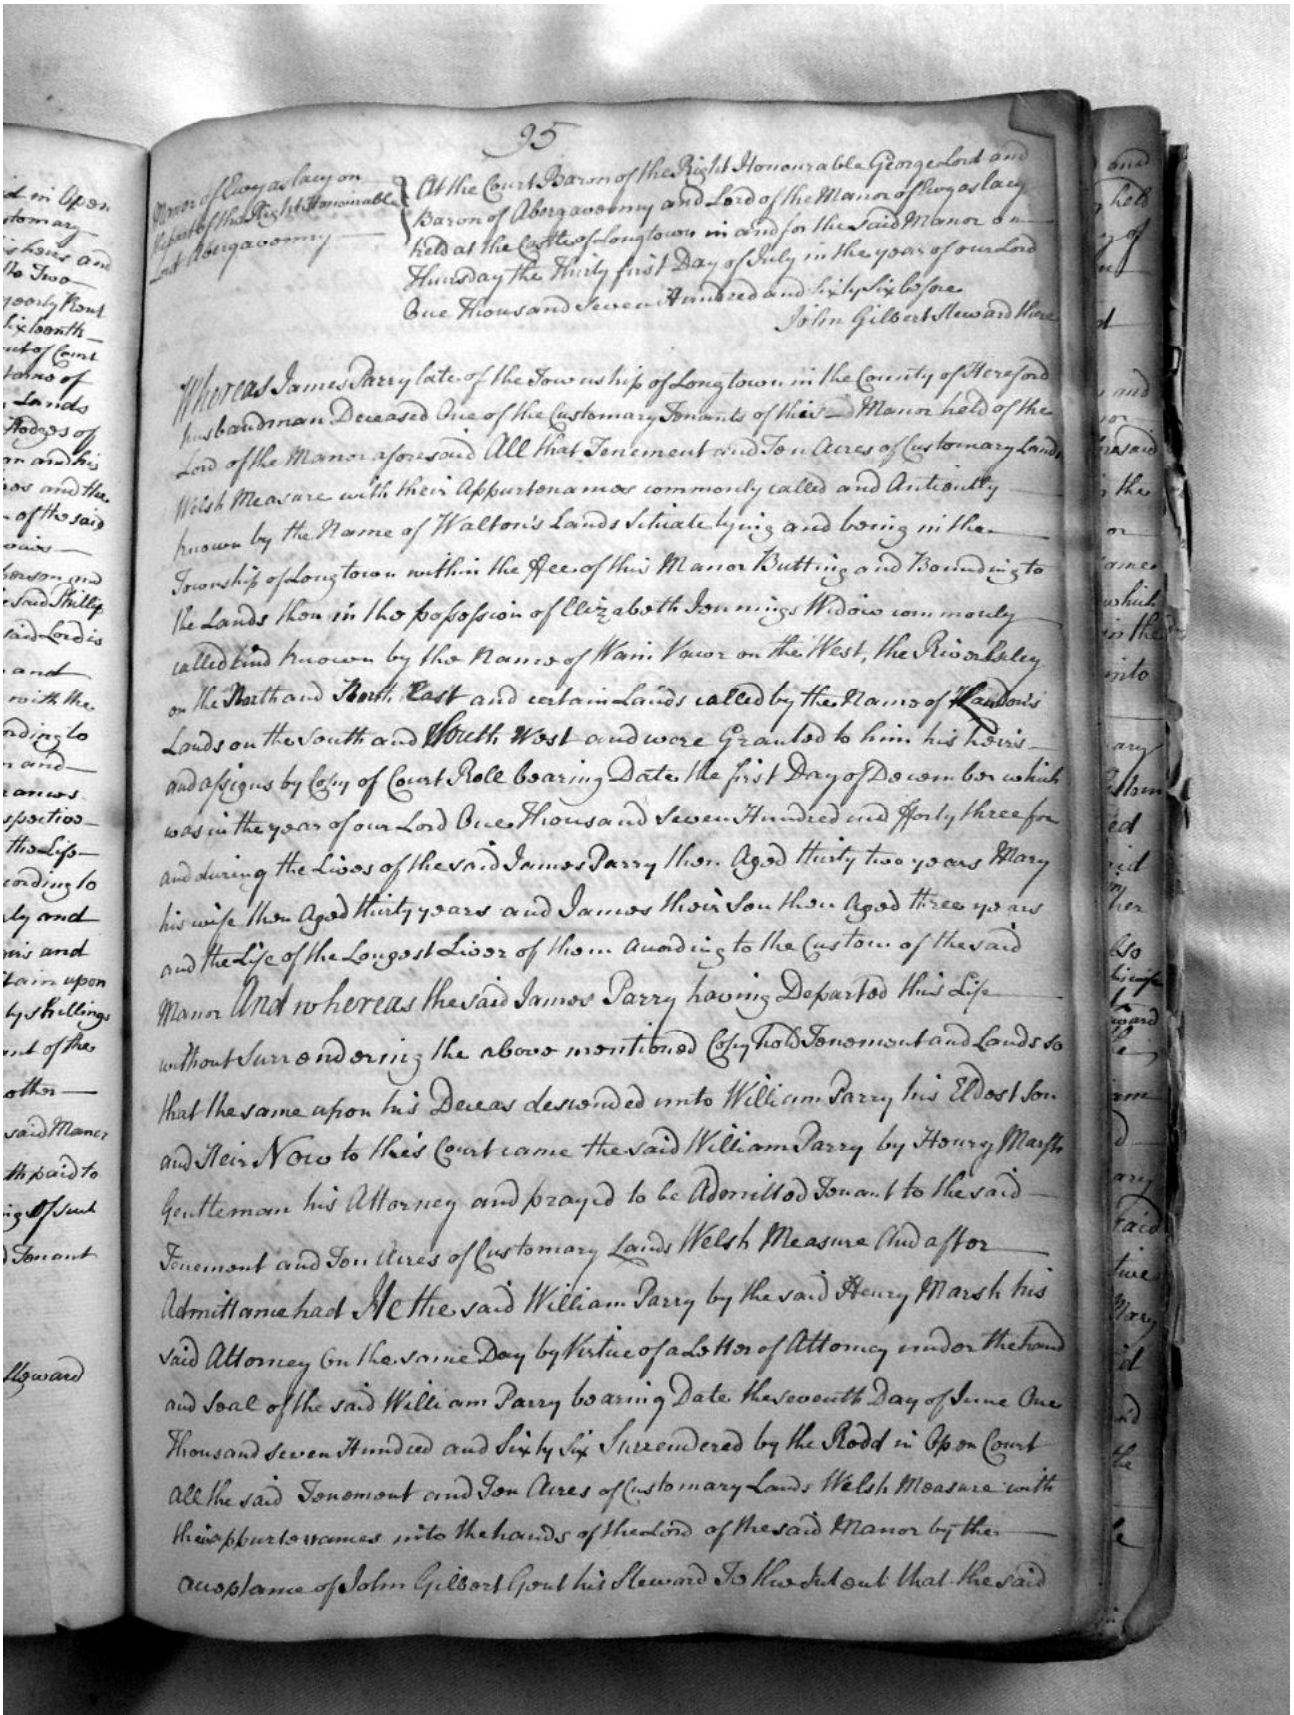 d in Open
tomary
is heirs and
the Two
yearly Rent
Sixteenth
out of Court
toms of
Lands
Hodges of
an and his
nos and the
of the said
person and
e said Phillip
said Lord is
and
with the
ording to
n and
ances
spective
the Life
cording to
ly and
irs and
tain upon
ty shillings
ent of the
other
said Manor
th paid to
ig of such
d Tenant
Steward
95
Manor of Ewyas lacy on
the part of the Right Honourable
Lord Abergavenny
At the Court Baron of the Right Honourable George Lord and
Baron of Abergavenny and Lord of the Manor of Ewyas lacy
held at the Castle of Longtown in and for the said Manor on
Thursday the Thirty first Day of July in the year of our Lord
One Thousand Seven Hundred and Sixty Six before
John Gilbert Steward there
Whereas James Parry late of the Township of Longtown in the County of Hereford
husbandman Deceased One of the Customary Tenants of this Manor held of the
Lord of the Manor aforesaid All that Tenement and Ten Acres of Customary Lands
Welsh Measure with their Appurtenances commonly called and Antiently
known by the Name of Walton's Lands Situate lying and being in the
Township of Longtown within the ffee of this Manor Butting and Bounding to
the Lands then in the possession of Elizabeth Jennings Widow commonly
called and known by the Name of Wain Vawr on the West, the River
on the North and North East and certain Lands called by the Name of
Lands on the South and South West and were Granted to him his heirs
and assigns by Copy of Court Roll bearing Date the first Day of December which
was in the year of our Lord One Thousand Seven Hundred and fforty three for
and during the Lives of the said James Parry then Aged thirty two years Mary
his wife then Aged thirty years and James their Son then Aged three years
and the Life of the Longest Liver of them according to the Custom of the said
Manor And whereas the said James Parry having Departed this Life
without Surrendering the above mentioned Copyhold Tenement and Lands so
that the same upon his Deceas descended unto William Parry his Eldest Son
and Heir Now to this Court came the said William Parry by Henry Marsh
Gentleman his Attorney and prayed to be Admitted Tenant to the said
Tenement and Ten Acres of Customary Lands Welsh Measure And after
Admittance had He the said William Parry by the said Henry Marsh his
said Attorney on the same Day by Virtue of a Letter of Attorney under the hand
and Seal of the said William Parry bearing Date the seventh Day of June One
Thousand seven Hundred and Sixty Six Surrendered by the Rodd in Open Court
all the said Tenement and Ten Acres of Customary Lands Welsh Measure with
their appurtenances into the hands of the Lord of the said Manor by the
acceptance of John Gilbert Gent his Steward To the Intent that the said